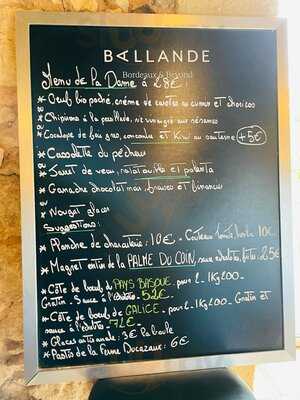 BALLANDE
Bordeaux & Beyond
Menu de la Dame à 28€:
* Oeuf bio poché, crème de carottes au cumin et chorizo
* Chipirons à la persillade, vinaigre aux sésames
* Escalope de foie gras, concombre et Kiwi au sauterne (+5€)
* Cassolette du pêcheur
* Jarret de veau, ratatouille et polenta
* Ganache chocolat mar, fraises et
* Nougat glacé
Suggestions:
* Planche de charcuterie: 10€ - Couteaux 10€
* Magret entier de la PALME DU COIN, sauce échalote, frites: 25€
* Côte de boeuf du PAYS BASQUE pour 2 - 1Kg200 -
Gratin - Sauce à l'échalote - 52€
* Côte de boeuf de GALICE pour 2 - 1Kg200 - Gratin et
sauce à l'échalote - 72€
* Glaces artisanale: 3€ la boule
* Pastis de la Ferme Ducazaux: 6€